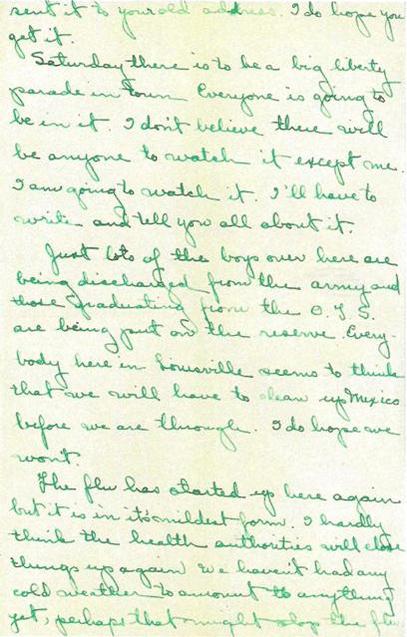 sent it to your old address. I do hope you
get it.
Saturday there is to be a big liberty
parade in town Everyone is going to
be in it. I don't believe there will
be anyone to watch it except me.
I am going to watch it. I'll have to
write and tell you all about it.
Just lots of the boys over here are
being discharged from the army and
those graduating from the O.T.S.
are being put on the reserve. Every-
body here in Louisville seems to think
that we will have to clean up Mexico
before we are through. I do hope we
won't.
The flu has started up here again
but it is in it's mildest form. I hardly
think the health authorities will close
things up again we haven't had any
cold weather to amount to anything
yet, perhaps that might stop the flu